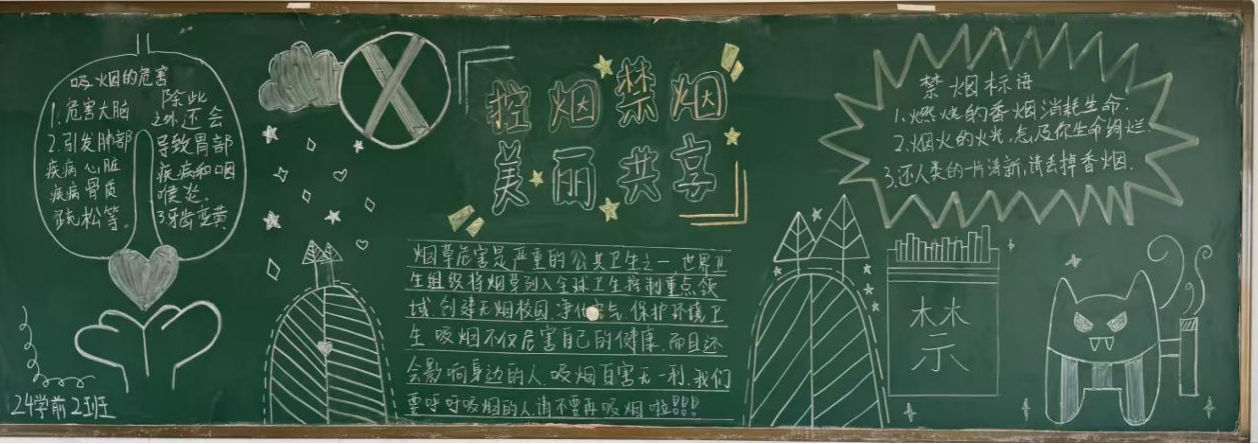 吸烟的危害
1.危害大脑
2.引发肺部
疾病心脏
疾病骨质
疏松等。
除此
之外还会
导致胃部
疾病和咽
喉炎。
3牙齿变黄
24学前2班
控烟禁烟
美丽共享
烟草危害是严重的公共卫生之一 世界卫
生组织将烟草列入全球卫生控制重点领
域.创建无烟校园.净化空气.保护环境卫
生 吸烟不仅危害自己的健康.而且还
会影响身边的人.吸烟百害无一利.我们
要呼吁吸烟的人.请不要再吸烟啦!!!
禁烟标语
1.燃烧的香烟消耗生命.
2.烟火的火光.怎及你生命绚烂.
3.还人类的一片清新,请丢掉香烟.
禁